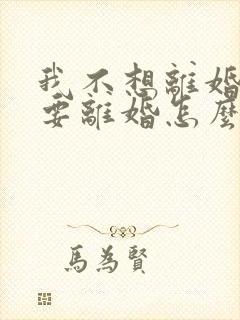 我不想離婚
要離婚怎麼
馬為賢